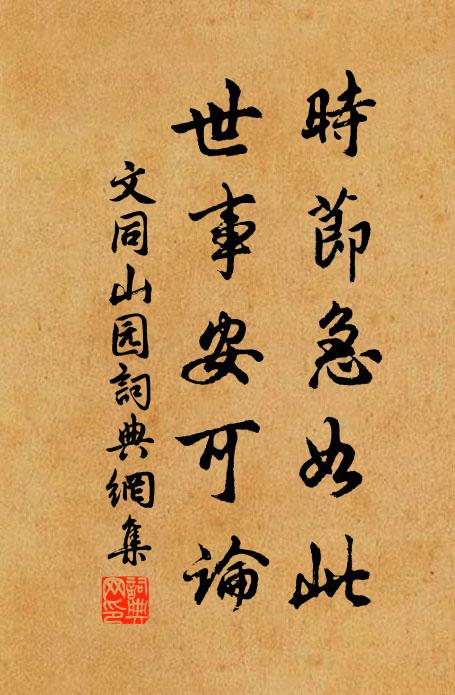 時節急如此
世事安可論
文同山园詞典網集
詞典网印